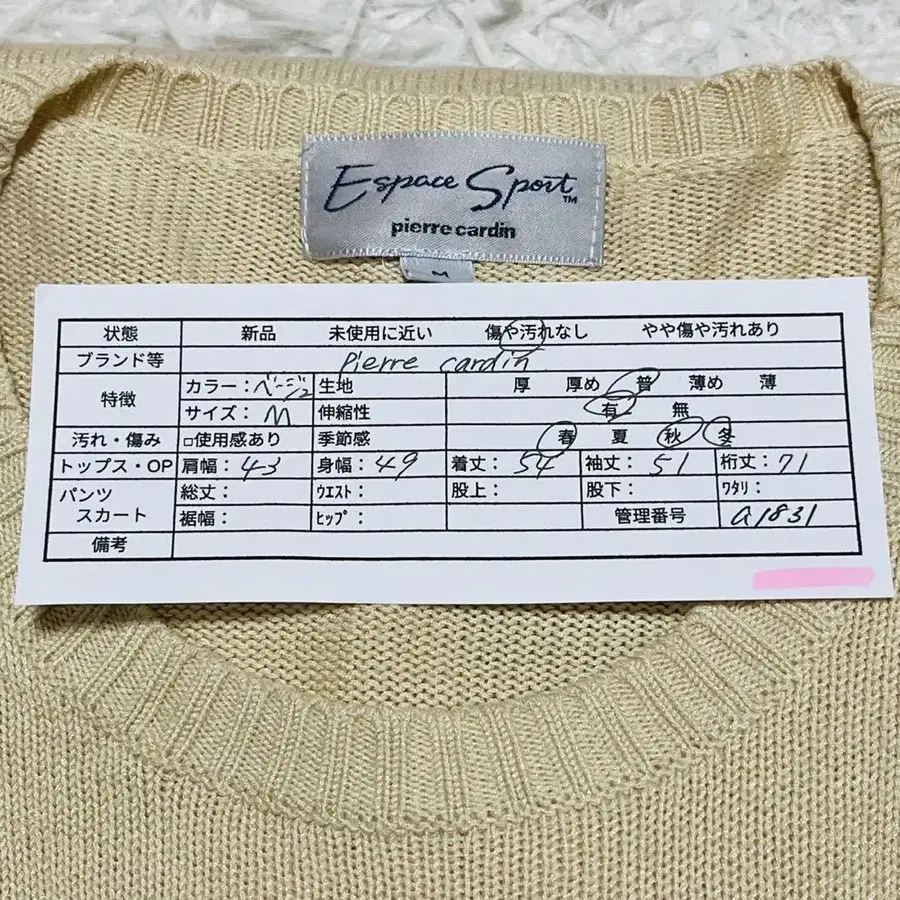 Espace Sport™
pierre cardin
M
状態 新品 未使用に近い 傷や汚れなし やや傷や汚れあり
ブランド等 Pierre cardin
特徴 カラー：ベージュ 生地 厚 厚め 普 薄め 薄
サイズ：M 伸縮性 有 無
汚れ・傷み □使用感あり 季節感 春 夏 秋 冬
トップス・OP 肩幅：43 身幅：49 着丈：54 袖丈：51 裄丈：71
パンツ 総丈： ｳｴｽﾄ： 股上： 股下： ﾜﾀﾘ：
スカート 裾幅： ﾋｯﾌﾟ： 管理番号 a1831
備考